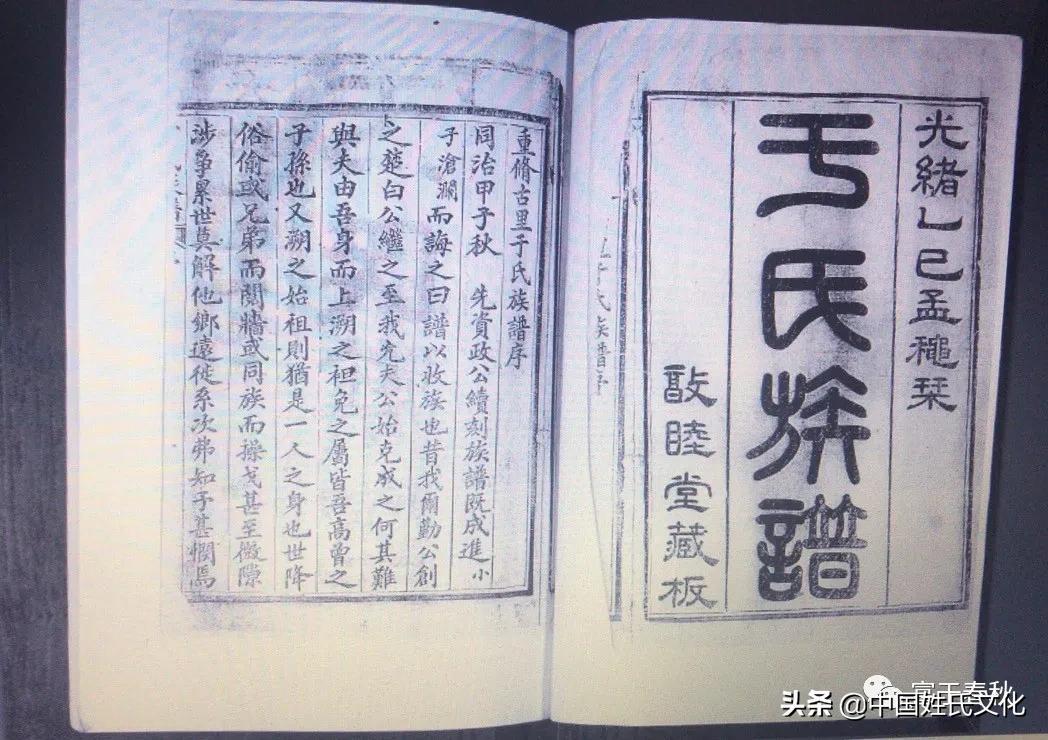 光緒乙巳孟龝栞
于氏族譜
敦睦堂藏板
于氏族譜序
重脩古里于氏族譜序
同治甲子秋 先資政公續刻族譜既成進小
子滄瀾而誨之曰譜以收族也昔我爾勤公創
之楚白公繼之至我先夫公始克成之何其難
與夫由吾身而上溯之袒免之屬皆吾高曾之
子孫也又溯之始祖則猶是一人之身也世降
俗偷或兄弟而鬩牆或同族而操戈甚至微隙
涉爭累世莫解他鄉遠徙系次弗知予甚憫焉
富于春秋
头条 @中国姓氏文化